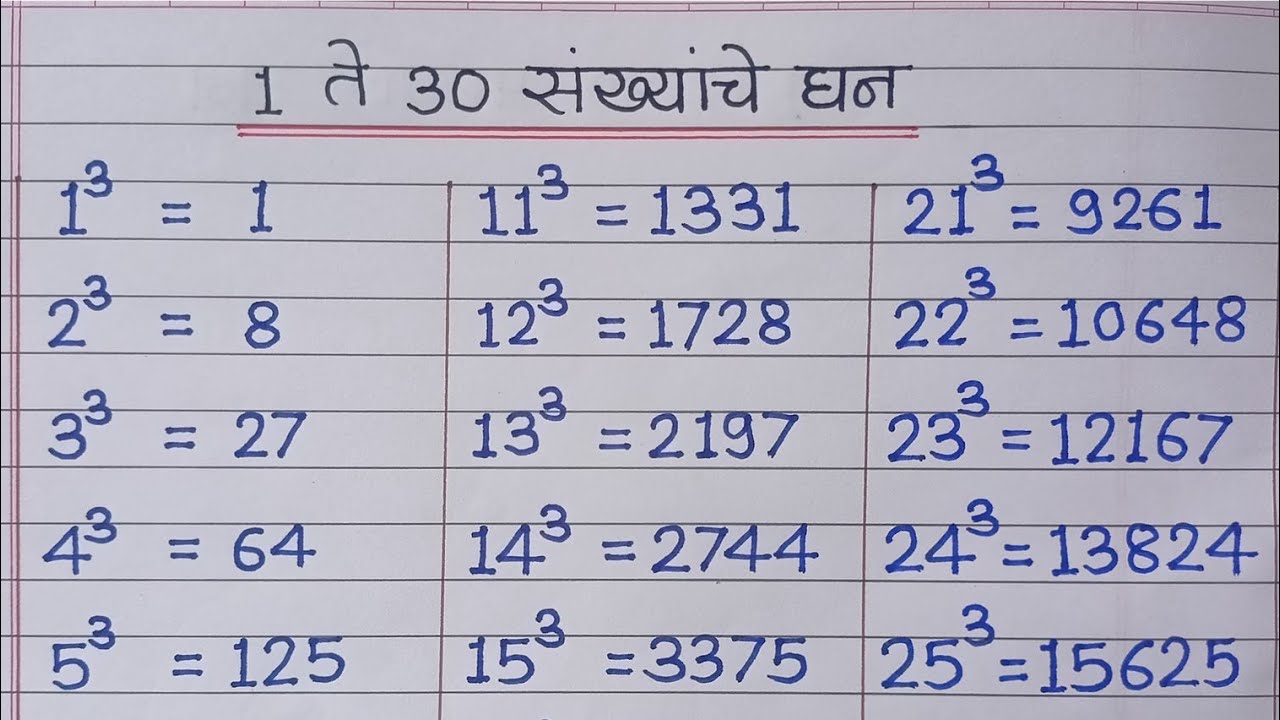 1 ते 30 संख्यांचे घन
1³ = 1 11³ = 1331 21³ = 9261
2³ = 8 12³ = 1728 22³ = 10648
3³ = 27 13³ = 2197 23³ = 12167
4³ = 64 14³ = 2744 24³ = 13824
5³ = 125 15³ = 3375 25³ = 15625